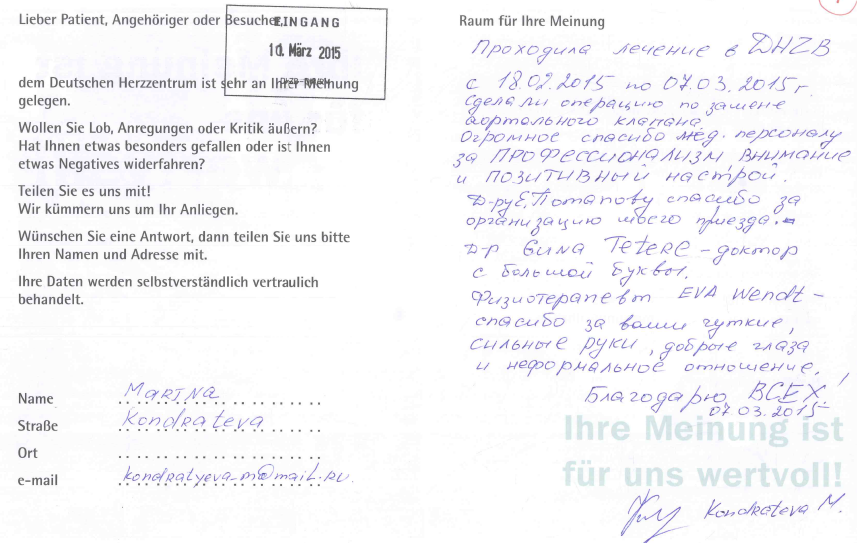 Lieber Patient, Angehöriger oder Besucher,
EINGANG
10. März 2015
dem Deutschen Herzzentrum ist sehr an Ihrer Meinung
gelegen.
Wollen Sie Lob, Anregungen oder Kritik äußern?
Hat Ihnen etwas besonders gefallen oder ist Ihnen
etwas Negatives widerfahren?
Teilen Sie es uns mit!
Wir kümmern uns um Ihr Anliegen.
Wünschen Sie eine Antwort, dann teilen Sie uns bitte
Ihren Namen und Adresse mit.
Ihre Daten werden selbstverständlich vertraulich
behandelt.
Name Marina
Straße Kondrateva
Ort
e-mail kondratyeva-m@mail.ru
Raum für Ihre Meinung
Проходила лечение в DHZB
с 18.02.2015 по 07.03.2015г.
Сделали операцию по замене
аортального клапана
Огромное спасибо мед. персоналу
за ПРОФЕССИОНАЛИЗМ, ВНИМАНИЕ
и ПОЗИТИВНЫЙ настрой.
Д-ру Е. Потапову спасибо за
организацию моего приезда.
Д-р Guna Tetere - доктор
с большой буквы.
Физиотерапевт EVA Wendt -
спасибо за ваши чуткие,
сильные руки, добрые глаза
и неформальное отношение.
Благодарю ВСЕХ!
07.03.2015
Ihre Meinung ist
für uns wertvoll!
Kondrateva M.